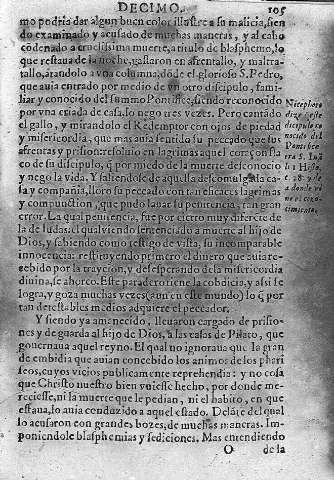 DECIMO. 105
mo podria dar algun buen color illustre a su malicia, sien
do examinado y acusado de muchas maneras, y al cabo
cõdenado a crudelissima muerte, a titulo de blasphemo, lo
que restaua de la noche, gastaron en afrentallo, y maltra-
tallo, atandolo a vna columna, dõde el glorioso S. Pedro,
que auia entrado por medio de vn otro discipulo, fami-
liar y conocido del summo Pontifice, siendo reconocido
por vna criada de casa, lo nego tres vezes. Pero cantado
el gallo, y mirandolo el Redemptor con ojos de piedad
y misericordia, que mas auia sentido su peccado que sus
afrentas y
co de su discipulo, q̃ por miedo de la muerte desconocio
y nego la vida. Y saliendose de aquella descomulgada ca-
sa y compañia, lloro su peccado con tan eficaces lagrimas
y compunction, que pudo lauar su penitencia, tan gran
error. La qual penitencia, fue por cierto muy diferẽte de
la de Iudas: el qual viendo sentenciado a muerte al hijo de
Dios, y sabiendo como testigo de vista, su incomparable
innocencia: restituyendo primero el dinero que auia re-
cebido por la traycion, y desesperando dela misericordia
diuina, se ahorco. Este paradero tiene la cobdicia, y assi se
logra, y goza muchas vezes (aun en este mundo) lo q̃ por
tan detestables medios adquiere el peccador.
Y siendo ya amenecido, lleuaron cargado de prisio-
nes y de guarda al hijo de Dios, a las casas de Pilato, que
gouernaua aquel reyno. El qual no ignoraua que la gran
de embidia que auian concebido los animos de los phari
seos, cuyos vicios publicamente reprehendia: y no cosa
que Christo nuestro bien vuiesse hecho, por donde me-
reciesse, ni la muerte que le pedian, ni el habito, en que
estaua, lo auia conduzido a aquel estado. Delãte del qual
lo acusaron con grandes bozes, de muchas maneras. Im-
poniendole blasphemias y sediciones. Mas entendiendo
O de la
Nicephoro
dize q̃ este
discipulo co
nocido del
Pontifice
era S. Iuã